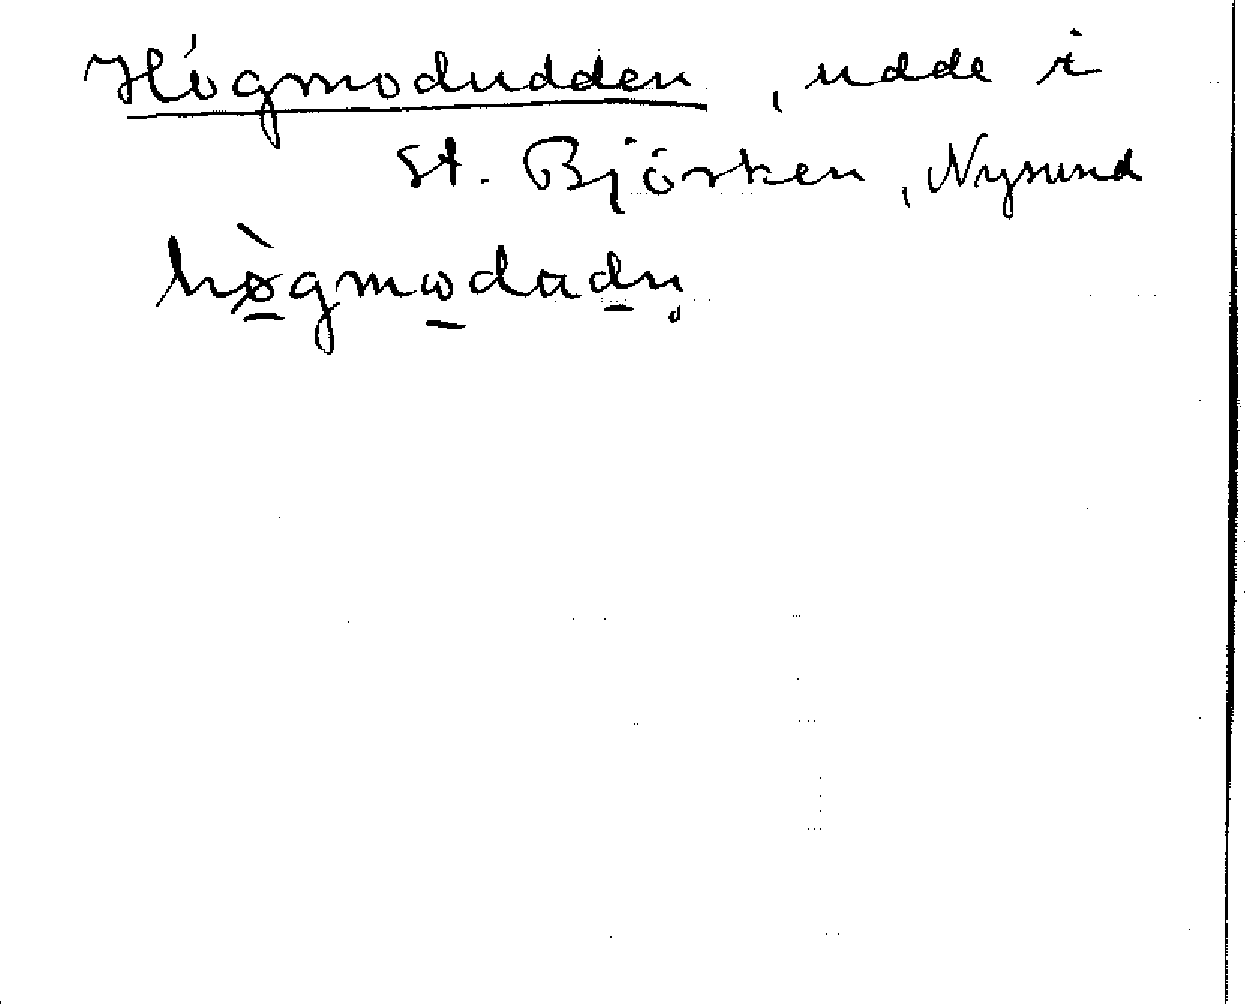 Högmodudden, udde i
St. Björken, Nysund
hø̀gmωdadn̥